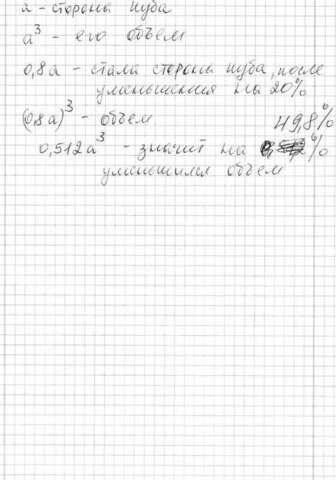 а - стороны куба
а³ - его объем
0,8а - стали стороны куба, после
уменьшения на 20%
(0,8а)³ - объем
49,8%
0,512а³ - значит на %
уменьшился объем